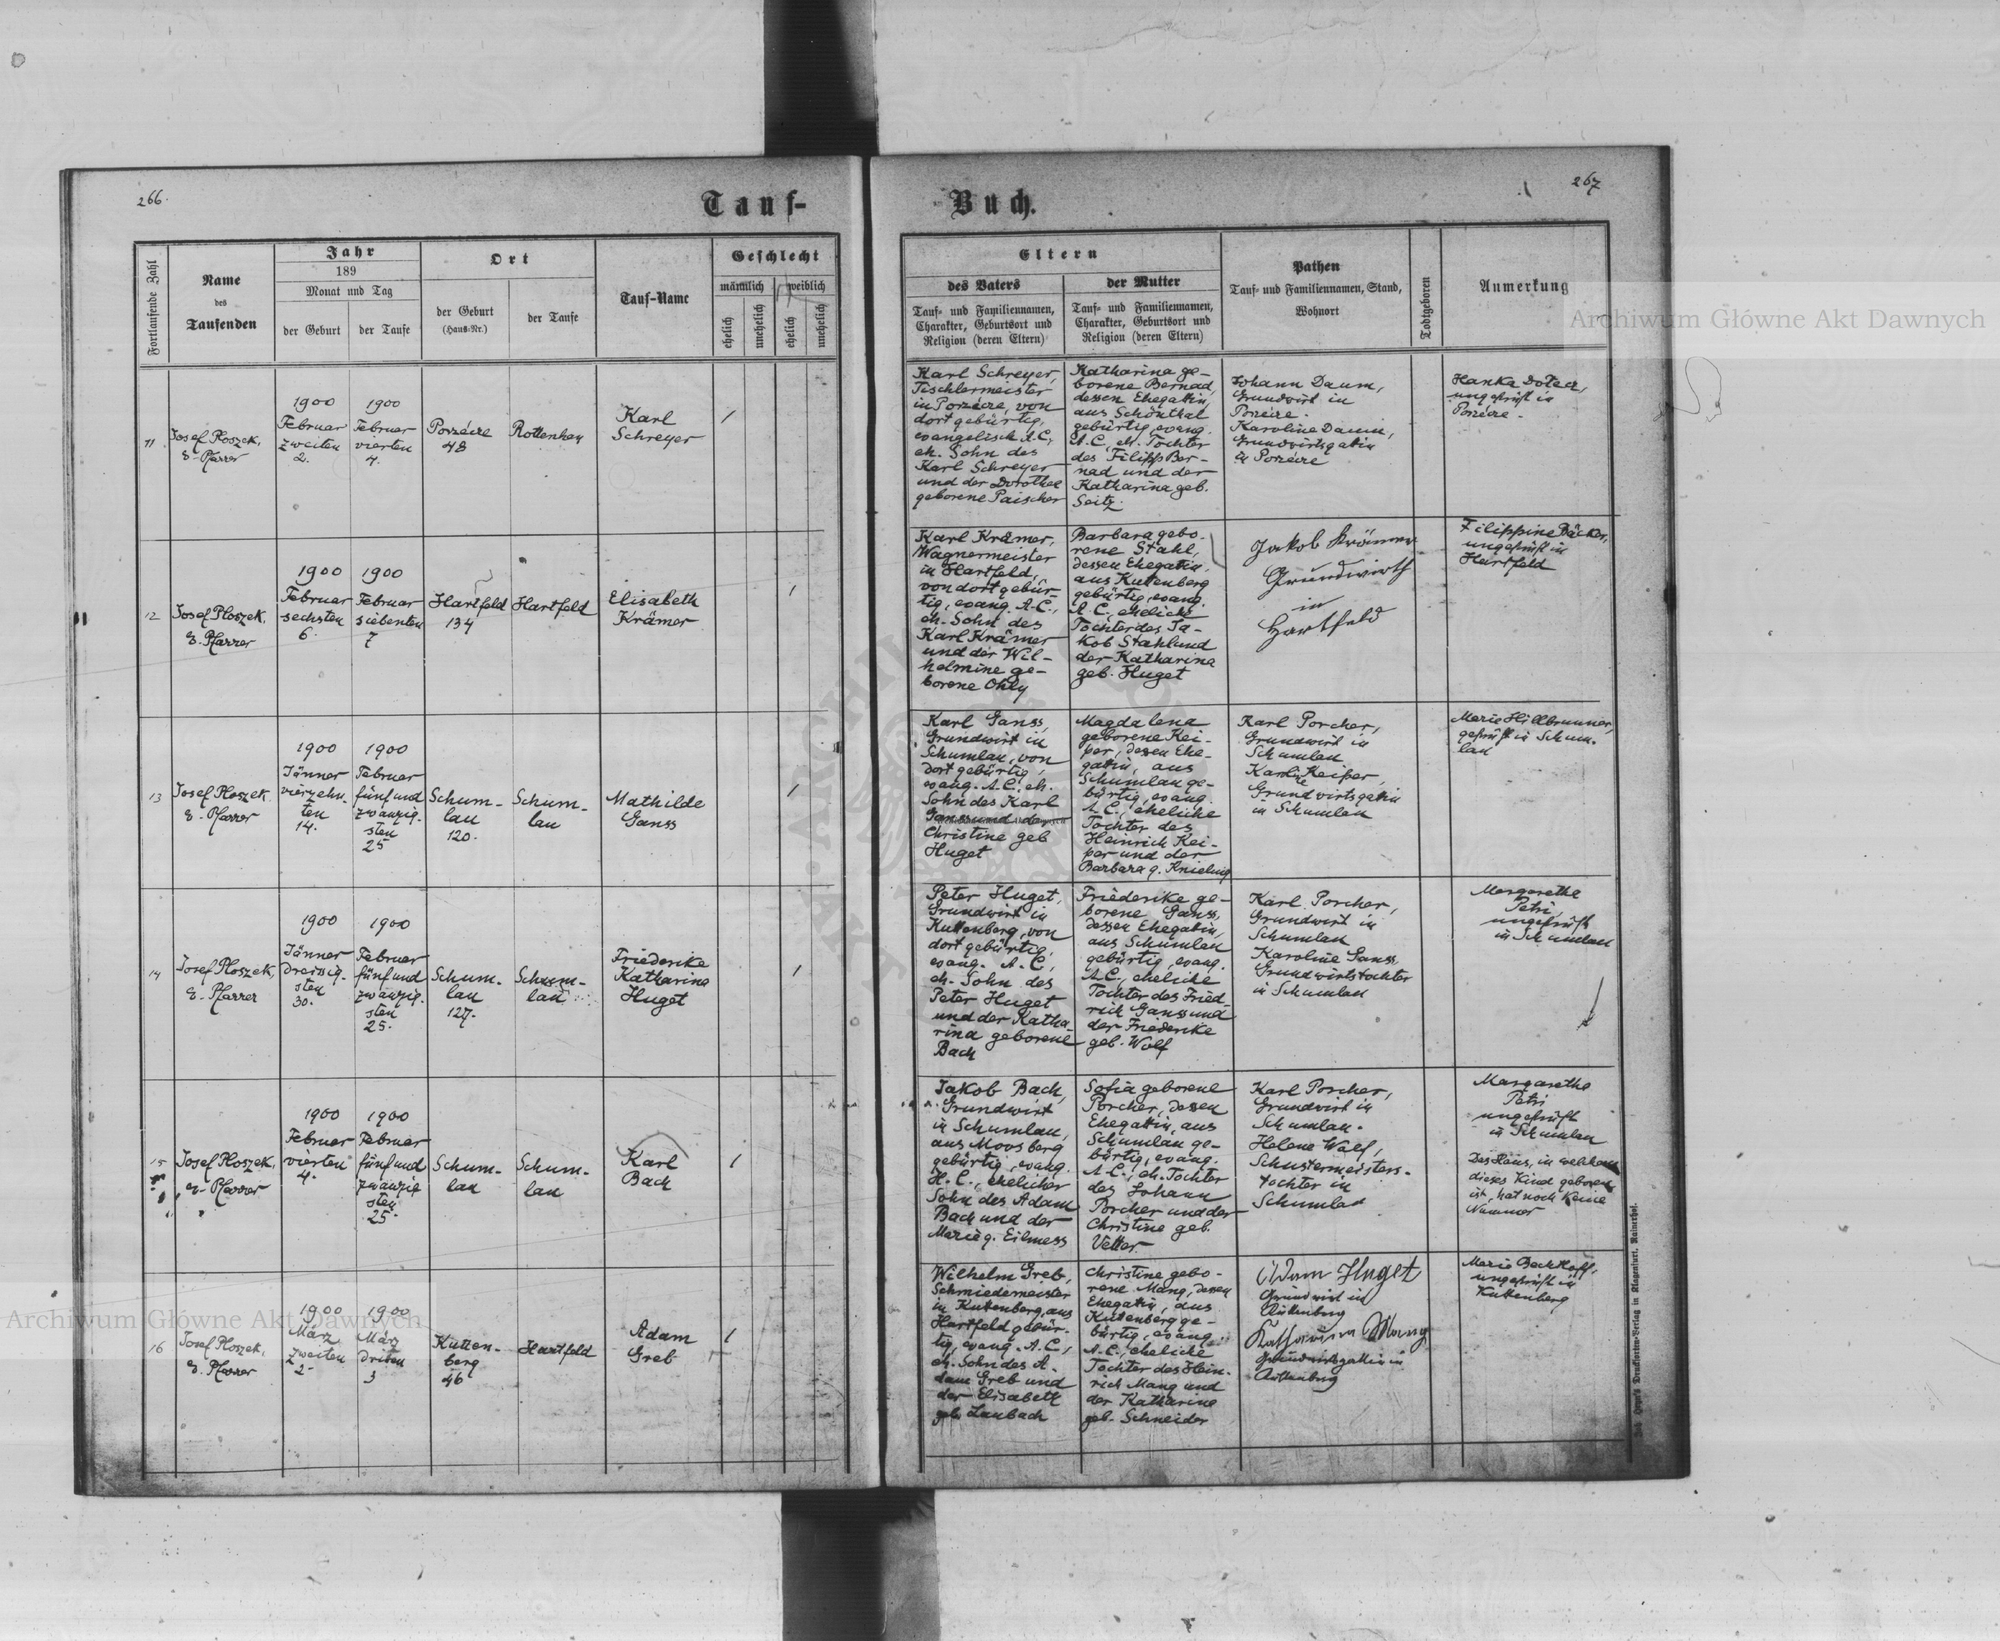 266.
Tauf-
Fortlaufende Zahl
Name
des
Taufenden
Jahr
189
Monat und Tag
der Geburt
der Taufe
Ort
der Geburt
(Haus-Nr.)
der Taufe
Tauf-Name
Geschlecht
männlich
weiblich
ehelich
unehelich
ehelich
unehelich
11
Josef Ploszek,
e. Pfarrer
1900
Februar
zweiten
2.
1900
Februar
vierten
4.
Porzecze
48
Rottenhan
Karl
Schreyer
1
12
Josef Ploszek,
e. Pfarrer
1900
Februar
sechsten
6.
1900
Februar
siebenten
7
Hartfeld
134
Hartfeld
Elisabeth
Krämer
1
13
Josef Ploszek
e. Pfarrer
1900
Jänner
vierzehn-
ten
14.
1900
Februar
fünfund
zwanzig-
sten
25
Schum-
lau
120.
Schum-
lau
Mathilde
Ganss
1
14
Josef Ploszek,
e. Pfarrer
1900
Jänner
dreissig-
sten
30.
1900
Februar
fünfund
zwanzig-
sten
25.
Schum-
lau
127.
Schum-
lau
Friederike
Katharina
Huget
1
15
Josef Ploszek,
e. Pfarrer
1900
Februar
vierten
4.
1900
Februar
fünfund
zwanzig
sten
25.
Schum-
lau
Schum-
lau
Karl
Bach
1
16
Josef Ploszek,
e. Pfarrer
1900
März
zweiten
2.
1900
März
dritten
3
Kutten-
berg
46
Hartfeld
Adam
Greb
1
267
Buch.
Eltern
des Vaters
Tauf- und Familiennamen,
Charakter, Geburtsort und
Religion (deren Eltern)
der Mutter
Tauf- und Familiennamen,
Charakter, Geburtsort und
Religion (deren Eltern)
Pathen
Tauf- und Familiennamen, Stand,
Wohnort
Todtgeboren
Anmerkung
Karl Schreyer,
Tischlermeister
in Porzecze, von
dort gebürtig,
evangelisch A.C,
eh. Sohn des
Karl Schreyer
und der Dorothea
geborene Paischer
Katharina ge-
borene Bernad,
dessen Ehegattin,
aus Schönthal
gebürtig, evang.
A.C. eh. Tochter
des Filipp Ber-
nad und der
Katharina geb.
Seitz.
Johann Daum,
Grundwirt in
Porzecze.
Karoline Daum,
Grundwirtsgattin
in Porzecze
Hanka
ungeprüft in
Porzecze.
Karl Krämer,
Wagnermeister
in Hartfeld,
von dort gebür-
tig, evang. A.C.,
eh. Sohn des
Karl Krämer
und der Wil-
helmine ge-
borene Ohly
Barbara gebo-
rene Stahl,
dessen Ehegattin,
aus Kuttenberg
gebürtig, evang.
A.C., eheliche
Tochter des Ja-
kob Stahl und
der Katharina
geb. Huget
Jakob Krämer
Grundwirth
in
Hartfeld
Filippine Bäcker,
ungeprüft in
Hartfeld
Karl Ganss,
Grundwirt in
Schumlau, von
dort gebürtig,
evang. A.C., eh.
Sohn des Karl
Ganss und der
Christine geb
Huget
Magdalena
geborene Kei-
per, dessen Ehe-
gattin, aus
Schumlau ge-
bürtig, evang.
A.C., eheliche
Tochter des
Heinrich Kei-
per und der
Barbara g. Knieling
Karl Porcher,
Grundwirt in
Schumlau
Karoline Keiper,
Grundwirtsgattin
in Schumlau
Marie Hillbrunner,
geprüft in Schum-
lau
Peter Huget,
Grundwirt in
Kuttenberg, von
dort gebürtig,
evang. A.C.,
eh. Sohn des
Peter Huget
und der Katha-
rina geborene
Bach
Friederike ge-
borene Ganss,
dessen Ehegattin,
aus Schumlau
gebürtig, evang.
A.C., eheliche
Tochter des Fried-
rich Ganss und
der Friederike
geb. Wolf
Karl Porcher,
Grundwirt in
Schumlau
Karoline Ganss,
Grundwirtstochter
in Schumlau
Margarethe
Petri,
ungeprüft
in Schumlau
Jakob Bach,
Grundwirt
in Schumlau,
aus Moosberg
gebürtig, evang.
H.C., ehelicher
Sohn des Adam
Bach und der
Marie g. Eilmess
Sofia geborene
Porcher, dessen
Ehegattin, aus
Schumlau ge-
bürtig, evang.
A.C., eh. Tochter
des Johann
Porcher und der
Christine geb.
Vetter.
Karl Porcher,
Grundwirt in
Schumlau.
Helene Wolf,
Schustermeisters-
tochter in
Schumlau
Margarethe
Petri
ungeprüft
in Schumlau
Das Haus, in welchem
dieses Kind geboren
ist, hat noch keine
Nummer
Wilhelm Greb,
Schmiedemeister
in Kuttenberg, aus
Hartfeld gebür-
tig, evang. A.C.,
eh. Sohn des A-
dam Greb und
der Elisabeth
geb. Laubach
Christine gebo-
rene Mang, dessen
Ehegattin, aus
Kuttenberg ge-
bürtig, evang.
A.C., eheliche
Tochter des Hein-
rich Mang und
der Katharina
geb. Schneider
Adam Huget
Grundwirt in
Kuttenberg
Katharina Mang
Grundwirtsgattin in
Kuttenberg
Marie Beckhoff,
ungeprüft in
Kuttenberg
Joh. Leon's Drucksorten-Verlag in Klagenfurt, Rainerhof.
Archiwum Główne Akt Dawnych
Archiwum Główne Akt Dawnych